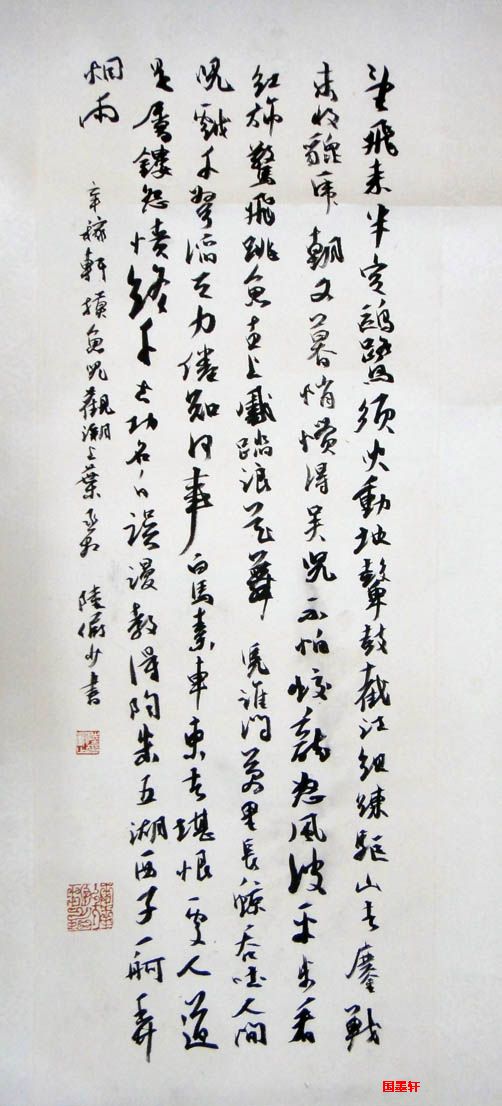 望飛來半空鷗鷺須臾動地鼙鼓截江組練驅山去鏖戰
未收貔虎朝又暮悄慣得吳兒不怕蛟龍怒風波平步看
紅旆驚飛跳魚直上蹙踏浪花舞 憑誰問萬里長鯨吞吐人間
兒戲千弩滔天力倦知何事白馬素車東去堪恨處人道
是屬鏤怨憤終千古功名自誤漫教得陶朱五湖西子一舸弄
烟雨
辛稼軒摸魚兒觀潮上葉丞相 陸儼少書
国墨轩